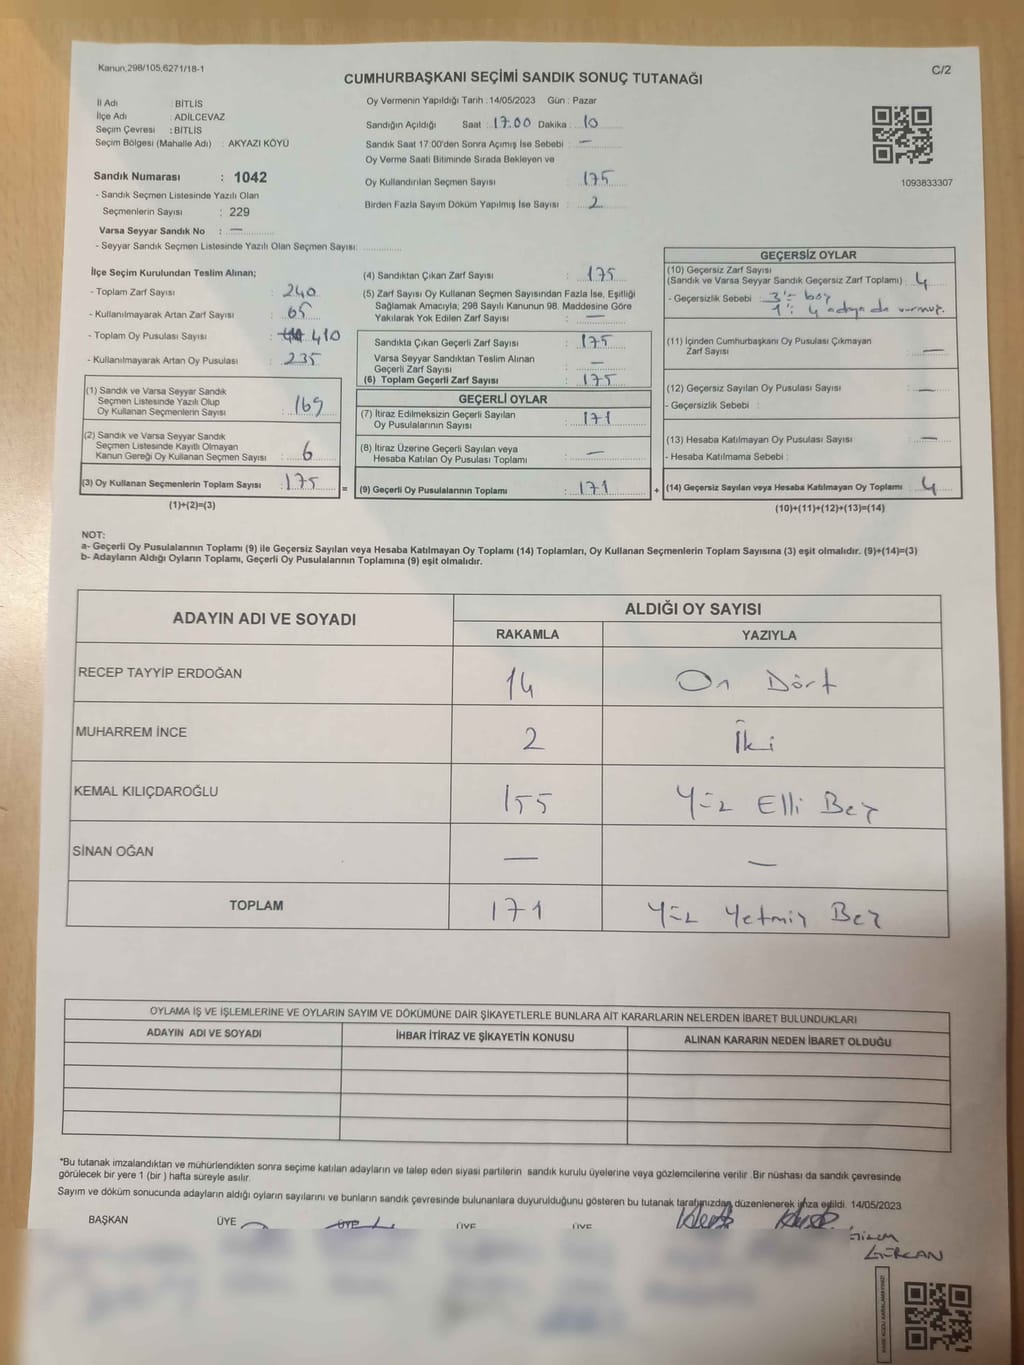 Kanun,298/105,6271/18-1
C/2
CUMHURBAŞKANI SEÇİMİ SANDIK SONUÇ TUTANAĞI
İl Adı : BİTLİS
İlçe Adı : ADİLCEVAZ
Seçim Çevresi : BİTLİS
Seçim Bölgesi (Mahalle Adı) : AKYAZI KÖYÜ
Sandık Numarası : 1042
- Sandık Seçmen Listesinde Yazılı Olan
Seçmenlerin Sayısı : 229
Varsa Seyyar Sandık No : —
- Seyyar Sandık Seçmen Listesinde Yazılı Olan Seçmen Sayısı:
Oy Vermenin Yapıldığı Tarih : 14/05/2023 Gün : Pazar
Sandığın Açıldığı Saat : 17.00 Dakika : 10
Sandık Saat 17:00'den Sonra Açımış İse Sebebi : —
Oy Verme Saati Bitiminde Sırada Bekleyen ve
Oy Kullandırılan Seçmen Sayısı : 175
Birden Fazla Sayım Döküm Yapılmış İse Sayısı : 2
1093833307
İlçe Seçim Kurulundan Teslim Alınan;
- Toplam Zarf Sayısı : 240
- Kullanılmayarak Artan Zarf Sayısı : 65
- Toplam Oy Pusulası Sayısı : 410
- Kullanılmayarak Artan Oy Pusulası : 235
(1) Sandık ve Varsa Seyyar Sandık
Seçmen Listesinde Yazılı Olup
Oy Kullanan Seçmenlerin Sayısı : 169
(2) Sandık ve Varsa Seyyar Sandık
Seçmen Listesinde Kayıtlı Olmayan
Kanun Gereği Oy Kullanan Seçmen Sayısı : 6
(3) Oy Kullanan Seçmenlerin Toplam Sayısı : 175 =
(1)+(2)=(3)
(4) Sandıktan Çıkan Zarf Sayısı : 175
(5) Zarf Sayısı Oy Kullanan Seçmen Sayısından Fazla İse, Eşitliği
Sağlamak Amacıyla; 298 Sayılı Kanunun 98. Maddesine Göre
Yakılarak Yok Edilen Zarf Sayısı : —
Sandıkta Çıkan Geçerli Zarf Sayısı : 175
Varsa Seyyar Sandıktan Teslim Alınan
Geçerli Zarf Sayısı : —
(6) Toplam Geçerli Zarf Sayısı : 175
GEÇERLİ OYLAR
(7) İtiraz Edilmeksizin Geçerli Sayılan
Oy Pusulalarının Sayısı : 171
(8) İtiraz Üzerine Geçerli Sayılan veya
Hesaba Katılan Oy Pusulası Toplamı : —
(9) Geçerli Oy Pusulalarının Toplamı : 171 +
GEÇERSİZ OYLAR
(10) Geçersiz Zarf Sayısı
(Sandık ve Varsa Seyyar Sandık Geçersiz Zarf Toplamı) : 4
- Geçersizlik Sebebi : 3'ü boş
1'i 4 adaya da vermiş.
(11) İçinden Cumhurbaşkanı Oy Pusulası Çıkmayan
Zarf Sayısı : —
(12) Geçersiz Sayılan Oy Pusulası Sayısı : —
- Geçersizlik Sebebi :
(13) Hesaba Katılmayan Oy Pusulası Sayısı : —
- Hesaba Katılmama Sebebi :
(14) Geçersiz Sayılan veya Hesaba Katılmayan Oy Toplamı : 4
(10)+(11)+(12)+(13)=(14)
NOT:
a- Geçerli Oy Pusulalarının Toplamı (9) ile Geçersiz Sayılan veya Hesaba Katılmayan Oy Toplamı (14) Toplamları, Oy Kullanan Seçmenlerin Toplam Sayısına (3) eşit olmalıdır. (9)+(14)=(3)
b- Adayların Aldığı Oyların Toplamı, Geçerli Oy Pusulalarının Toplamına (9) eşit olmalıdır.
ADAYIN ADI VE SOYADI
ALDIĞI OY SAYISI
RAKAMLA YAZIYLA
RECEP TAYYİP ERDOĞAN 14 On Dört
MUHARREM İNCE 2 İki
KEMAL KILIÇDAROĞLU 155 Yüz Elli Beş
SİNAN OĞAN — —
TOPLAM 171 Yüz Yetmiş Beş
OYLAMA İŞ VE İŞLEMLERİNE VE OYLARIN SAYIM VE DÖKÜMÜNE DAİR ŞİKAYETLERLE BUNLARA AİT KARARLARIN NELERDEN İBARET BULUNDUKLARI
ADAYIN ADI VE SOYADI İHBAR İTİRAZ VE ŞİKAYETİN KONUSU ALINAN KARARIN NEDEN İBARET OLDUĞU
*Bu tutanak imzalandıktan ve mühürlendikten sonra seçime katılan adayların ve talep eden siyasi partilerin sandık kurulu üyelerine veya gözlemcilerine verilir .Bir nüshası da sandık çevresinde
görülecek bir yere 1 (bir ) hafta süreyle asılır.
Sayım ve döküm sonucunda adayların aldığı oyların sayılarını ve bunların sandık çevresinde bulunanlara duyurulduğunu gösteren bu tutanak tarafımızdan düzenlenerek imza edildi. 14/05/2023
BAŞKAN ÜYE ÜYE ÜYE ÜYE
GÜRCAN